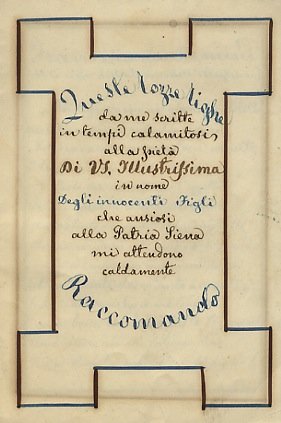 Queste rozze righe
da me scritte
in tempi calamitosi,
alla pietà
Di VS. Illustrissima
in nome
Degli innocenti Figli
che ansiosi
alla Patria Siena
mi attendono
caldamente
Raccomando